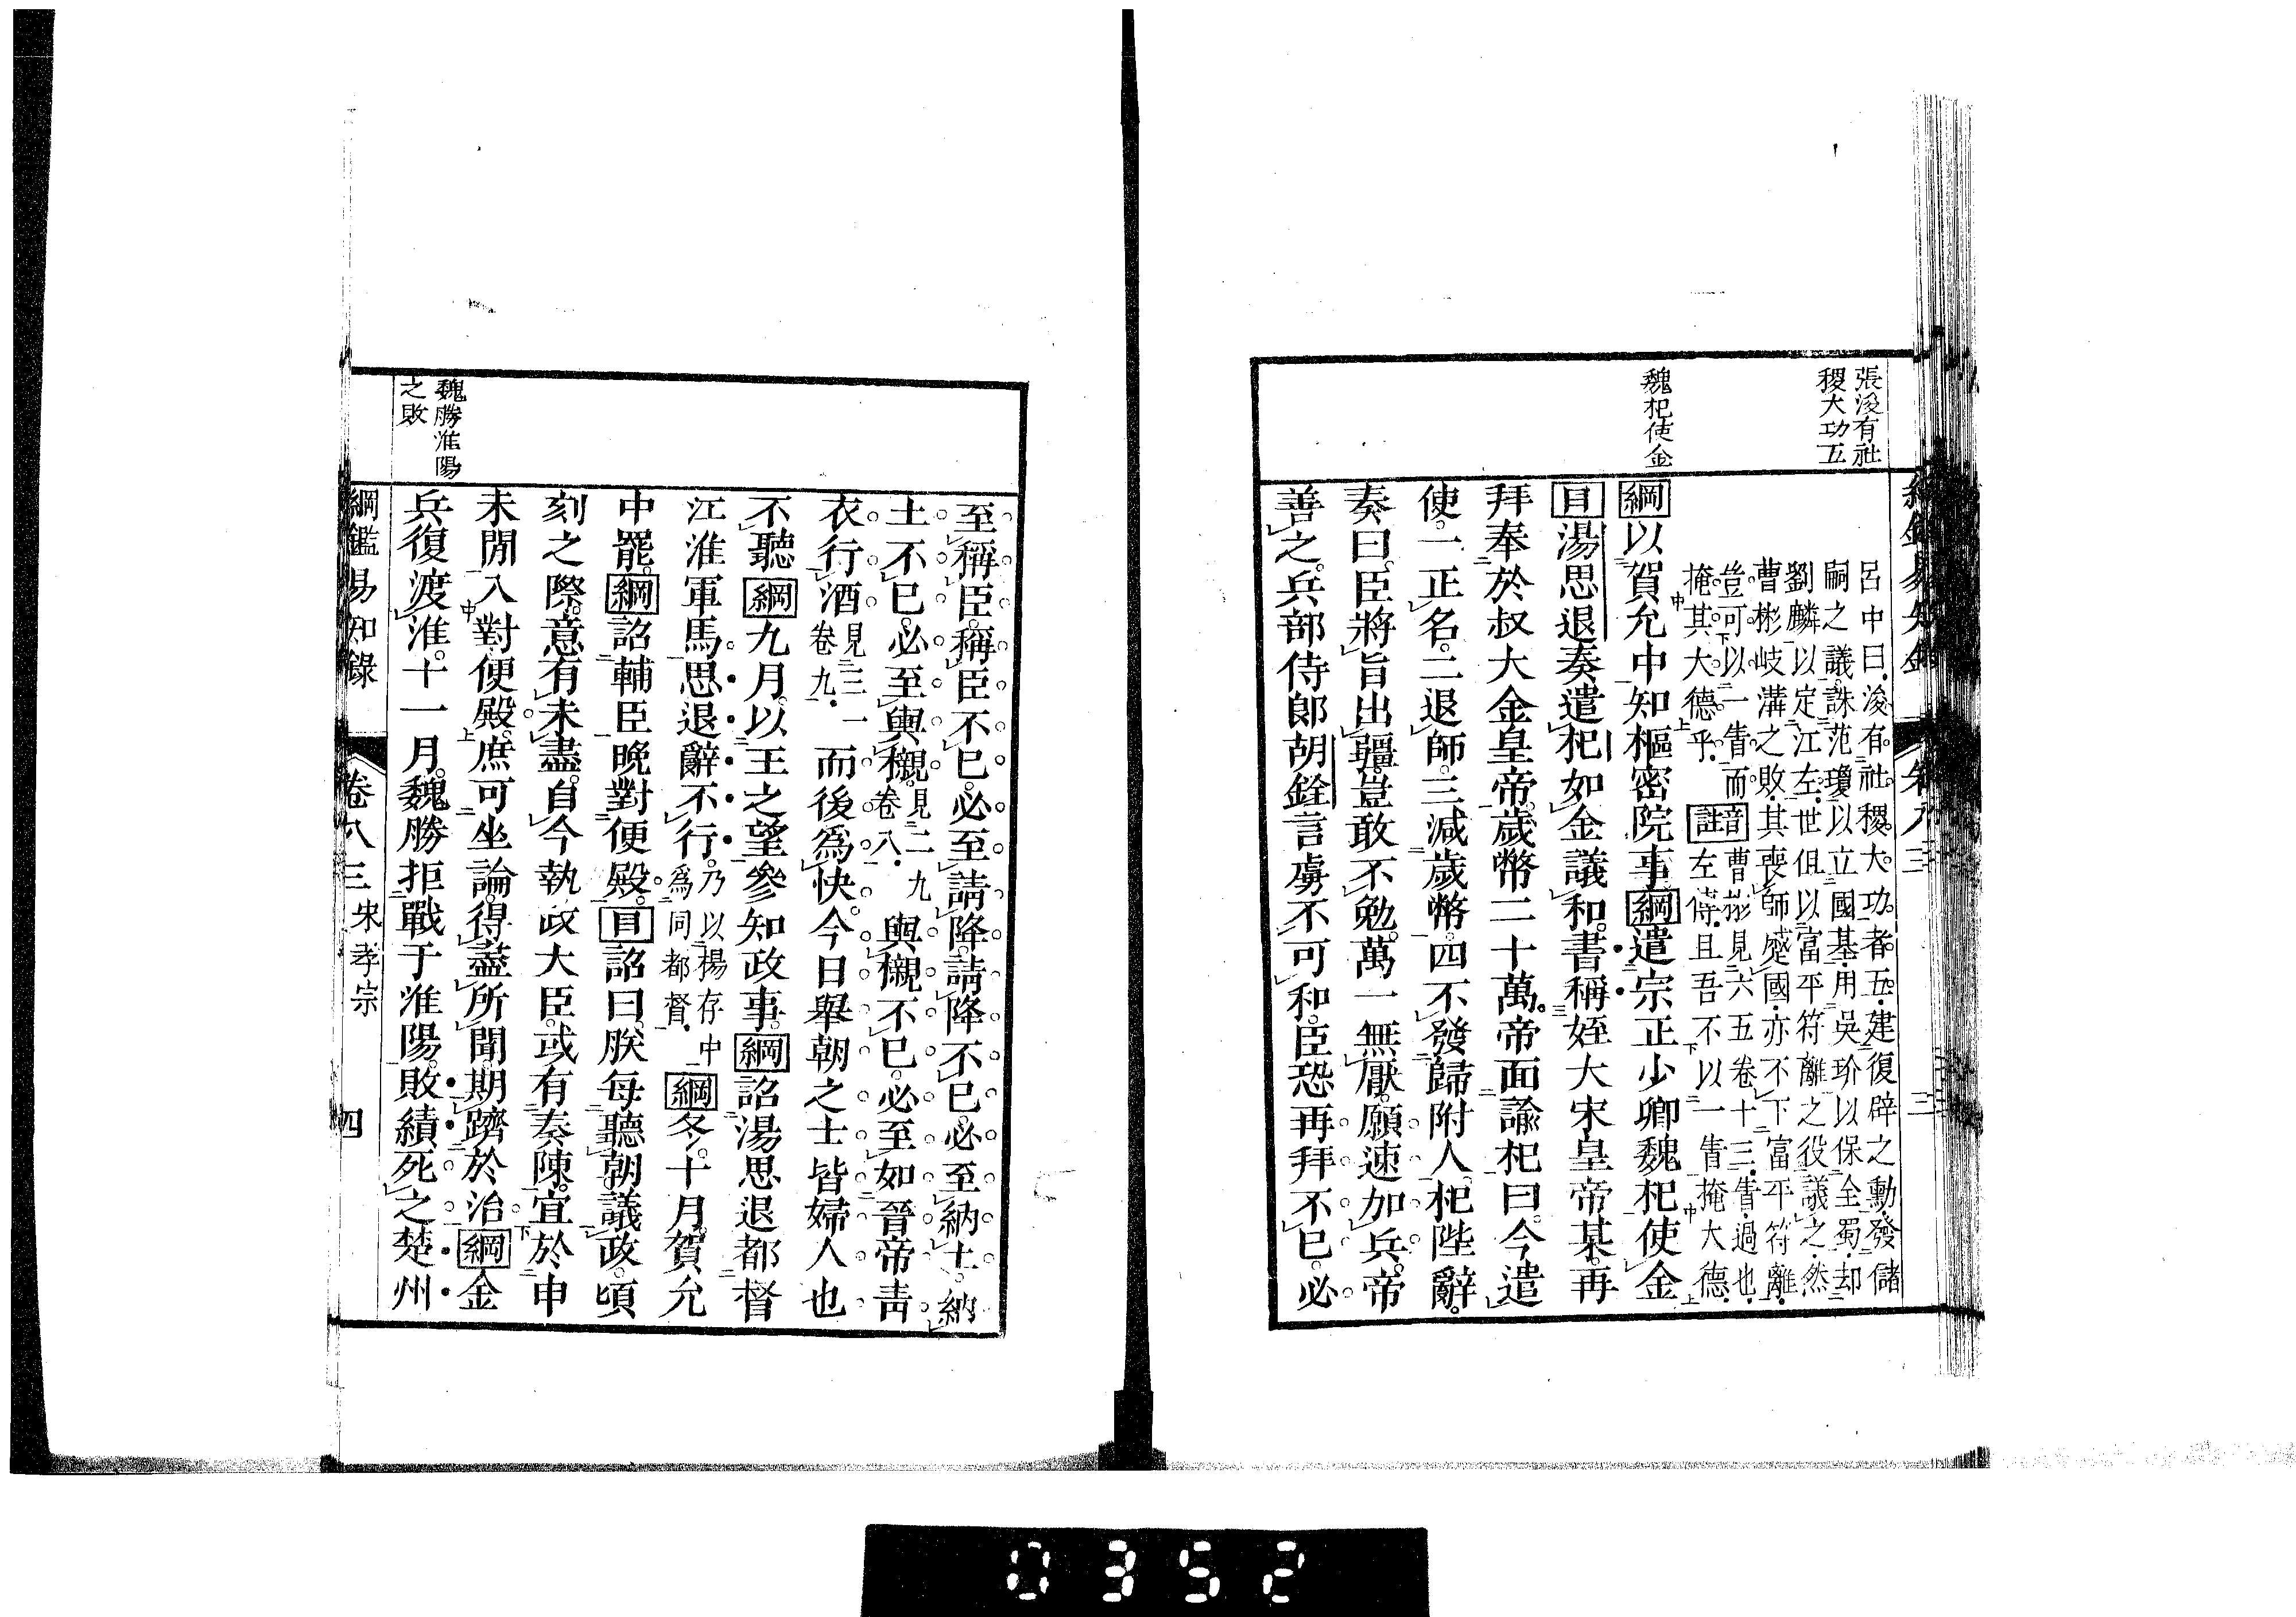 張浚有社
稷大功五
魏杞使金
呂中曰浚有社稷大功者五建復辟之勳發儲
嗣之議誅范瓊以立國基用吳玠以保全蜀却
劉麟以定江左世但以富平符離之役議之然
曹彬岐溝之敗其喪師蹙國亦不下富平符離
豈可以一眚而
掩其大德乎
音註
曹彬見六五卷十三眚過也
左傳且吾不以一眚掩大德
綱以賀允中知樞密院事綱遣宗正少卿魏杞使金
目湯思退奏遣杞如金議和書稱姪大宋皇帝某再
拜奉於叔大金皇帝歲幣二十萬帝面諭杞曰今遣
使一正名二退師三減歲幣四不發歸附人杞陛辭
奏曰臣將旨出疆豈敢不勉萬一無厭願速加兵帝
善之兵部侍郞胡銓言虜不可和臣恐再拜不已必
至稱臣稱臣不已必至請降請降不已必至納土納
土不已必至輿櫬見二九卷八輿櫬不已必至如晉帝靑
衣行酒見三一卷九而後爲快今日舉朝之士皆婦人也
不聽綱九月以王之望參知政事綱詔湯思退都督
江淮軍馬思退辭不行乃以楊存中爲同都督綱冬十月賀允
中罷綱詔輔臣晚對便殿目詔曰朕每聽朝議政頃
刻之際意有未盡自今執政大臣或有奏陳宜於申
未閒入對便殿庶可坐論得盡所聞期躋於治綱金
兵復渡淮十一月魏勝拒戰于淮陽敗績死之楚州
魏勝淮陽
之敗
綱鑑易知錄 卷八三 宋孝宗 四